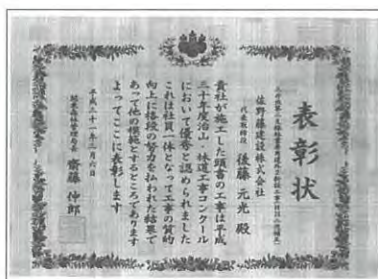 表彰状
佐野藤建設株式会社
代表取締役 後藤元光 殿
貴社が施工した頭書の工事は平成
三十年度治山・林道工事コンクール
において優秀と認められました
これは社員一体となって工事の質的
向上に格段の努力を払われた結果で
あって他の模範とするところであります
よってここに表彰します
平成三十一年三月六日
関東森林管理局長 齋藤伸郎